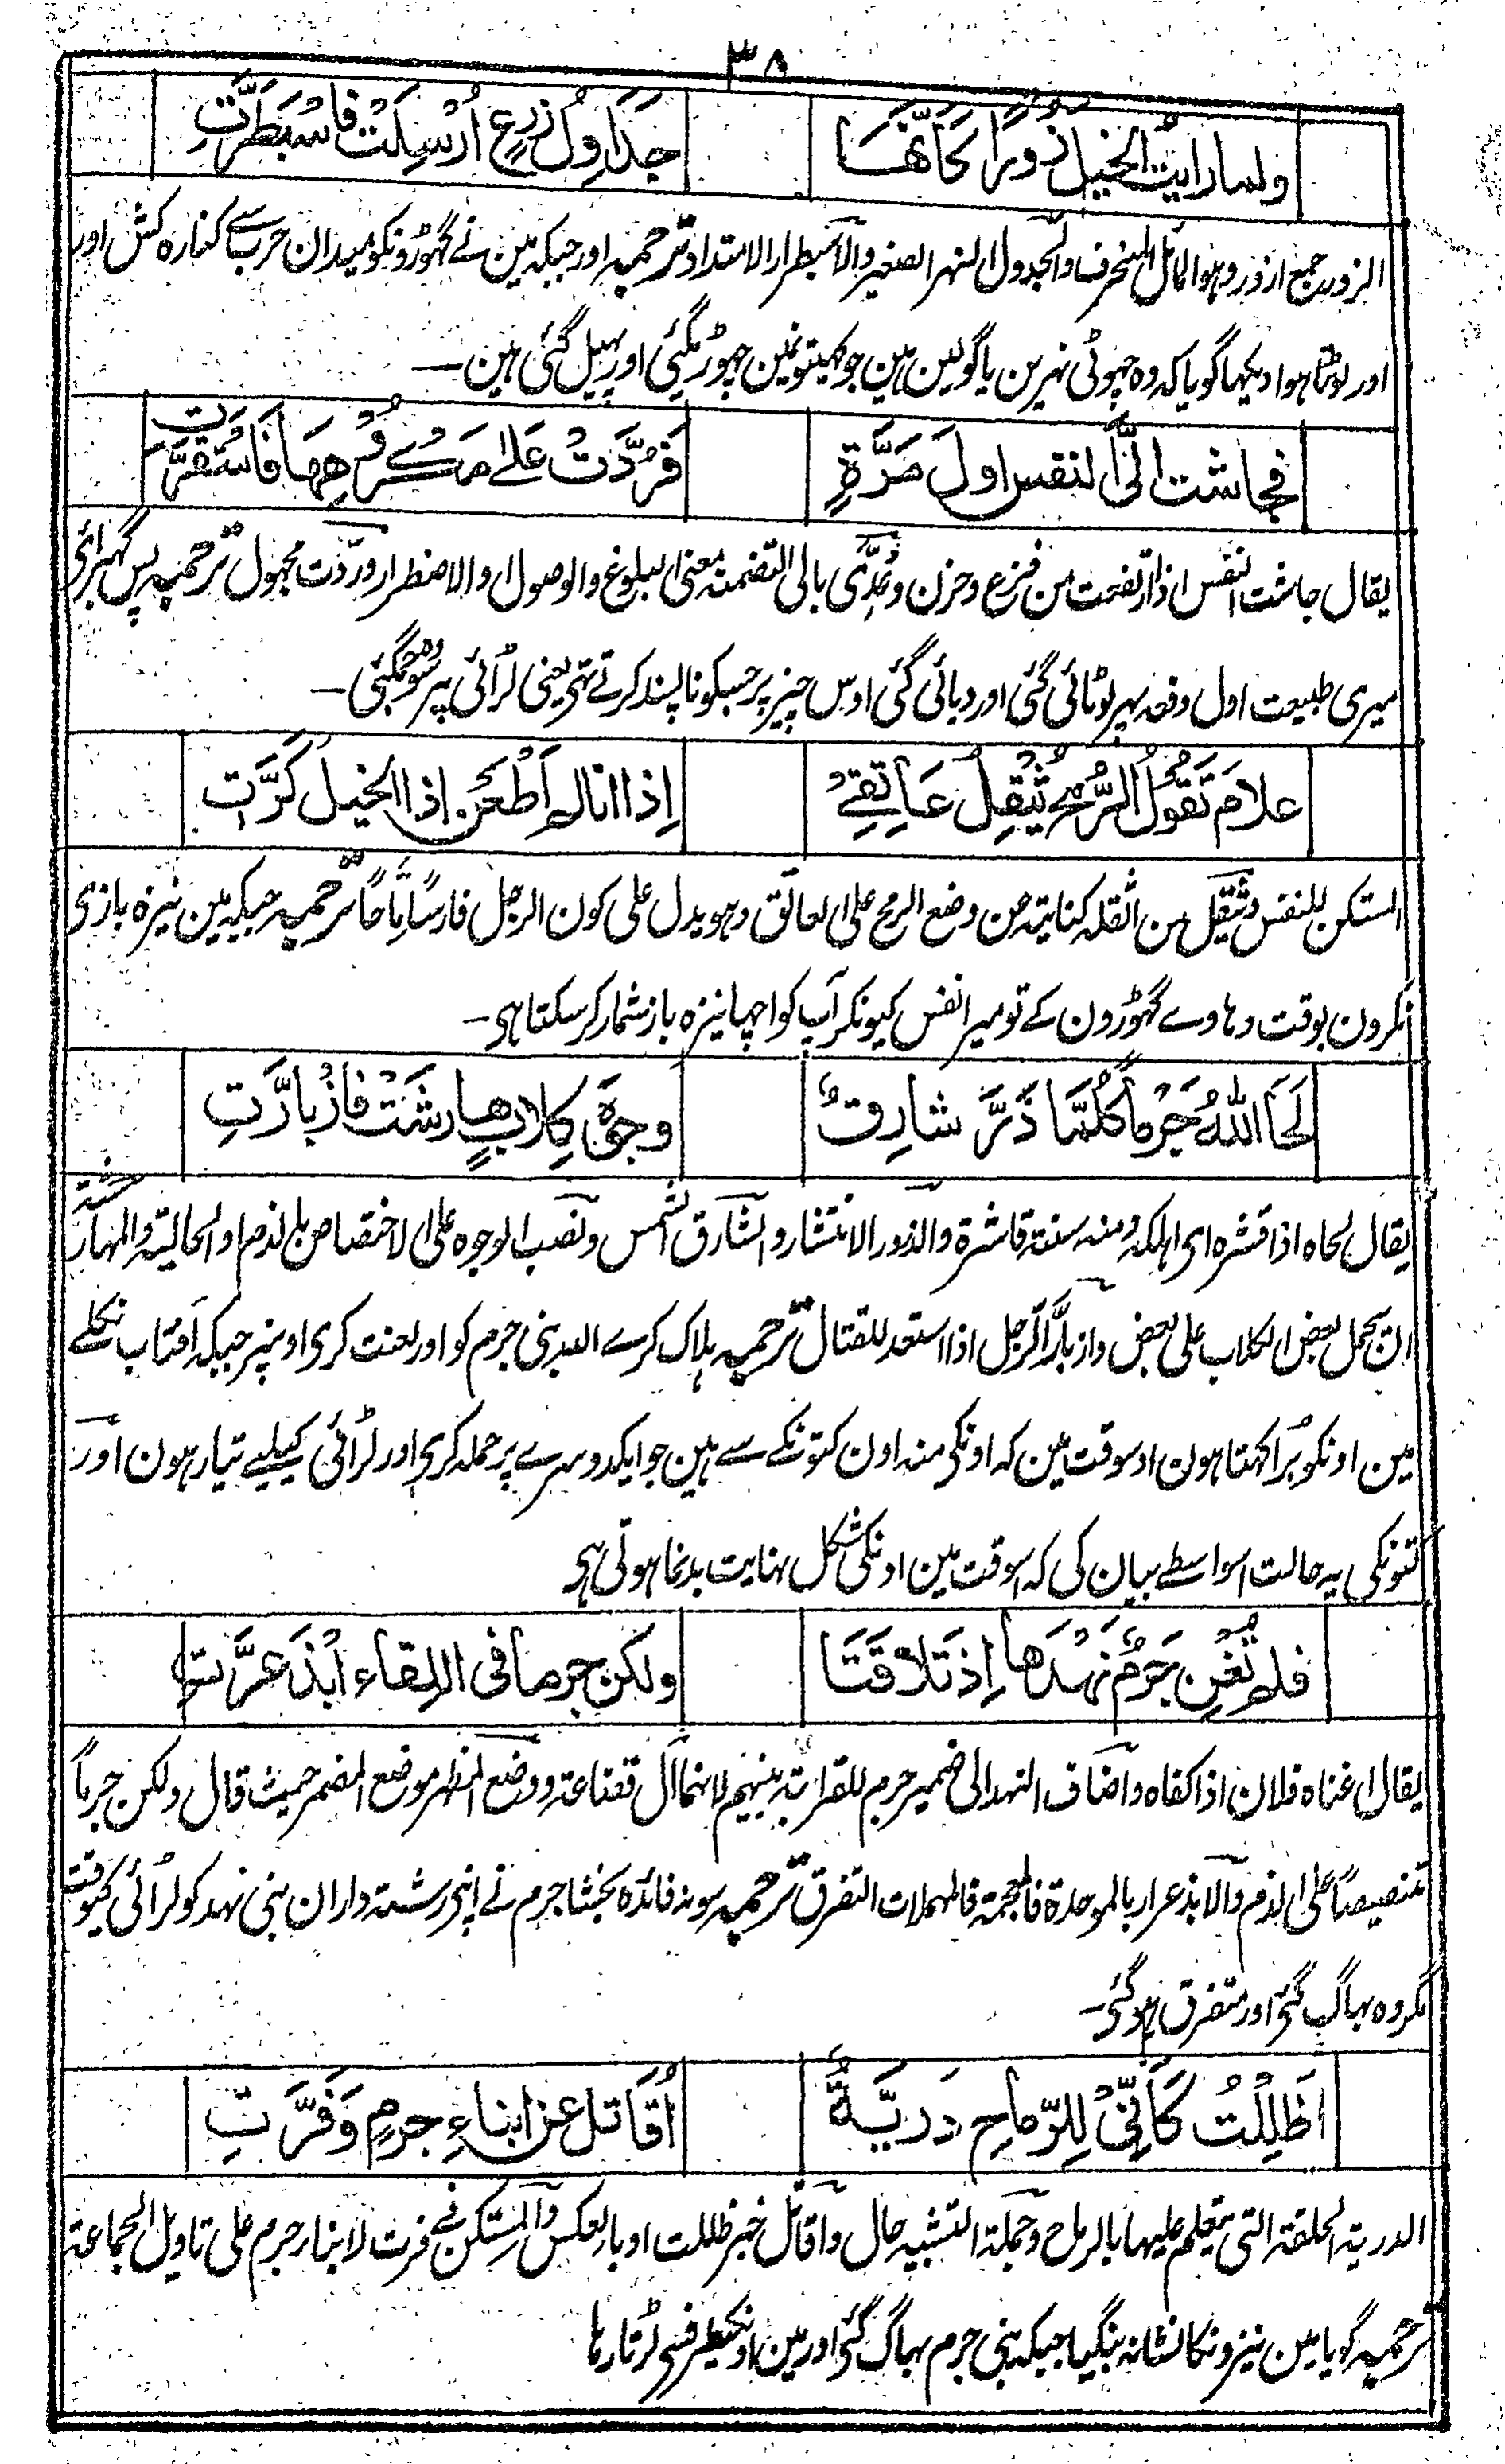 ۳۸
ولما رایت الخیل زُورًا کَاَنَّهَا جَدَاوِلُ زرعٍ اُرْسِلَتْ فَاسْبَطَرَّتِ
الزور جمع ازور وہو المائل المنحرف والجدول النہر الصغیر والاسبطرار الامتداد ترجمہ اور جبکہ مین نے گھوڑونکو میدان حرب سے کنارہ کش اور
اور لوٹتا ہوا دیکھا گویا کہ وہ چھوٹی نہرین یا گولین ہین جو کھیتونمین چھوڑیگئی اور پھیل گئی ہین ۔
فجاشت الیَّ النفس اول مَرَّةٍ فَرُدَّتْ عَلٰے مَکْرُوْهِهَا فَاسْتَقَرَّتِ
یقال جاشت النفس اذا ارتفعت من فزع وحزن وعُدِّی بالی التضمنہ معنی البلوغ والوصول او الاضطرار وردّت مجہول ترجمہ پس گھبرائی
میری طبیعت اول دفعہ پھر لوٹائی گئی اور دبائی گئی اوس چیز پر جسکو ناپسند کرتے تھی یعنی لڑائی پر سو وہ جم گئی ۔
علامَ تَقُوْلُ الرُّمْحُ یُثْقِلُ عَاتِقِیْ اِذا انا لم اَطْعَن اذا الخیل کَرَّتِ
المستکن للنفس ویثقل من اثقلہ کنایتہ عن وضع الرمح علی العاتق وہو یدل علی کون الرجل فارسًا رمّاحًا ترجمہ جبکہ مین نیزہ بازی
نکرون بوقت دہاوے گھوڑون کے تو میرا نفس کیونکر آپ کو اچھا نیزہ باز شمار کرسکتا ہی ۔
لَحَا اللهُ جَرْمًا کُلَّمَا ذَرَّ شارِقٌ وجوهَ کِلابٍ هارشَتْ فَازْبَارَّتِ
یقال لحاہ اذا قشرہ ای اہلکہ ومنہ سنۃ قاشرۃ والذرور الانتشار والشارق الشمس ونصب الوجوہ علی الاختصاص بالذم او الحالیۃ والمہارشۃ
ان یحمل بعض الکلاب علی بعض وازبارّ الرجل اذا استعد للقتال ترجمہ ہلاک کرے اللہ بنی جرم کو اور لعنت کری اونپر جبکہ آفتاب نکلے
مین اونکو بُرا کہتا ہون اوسوقت مین کہ اونکی منہ اون کتونکے سے ہین جو ایکدوسرے پر حملہ کری اور لڑائی کیلیے تیار ہون اور
کتونکی یہ حالت اسواسطے بیان کی کہ اسوقت مین اونکی شکل نہایت بدنما ہوتی ہی
فلم تُغْنِ جَرْمٌ نَهْدَها اِذ تَلَاقَتَا ولکن جرما فی اللقاء ابْذَعَرَّتِ
یقال اغناہ فلان اذا کفاہ واضاف النہد الی ضمیر جرم للقرابتہ بینہم لانہما آل قضاعۃ ووضع المظہر موضع المضمر حیث قال ولکن جرماً
تنصیصاً علی الذم والابذعرار بالموحدۃ فالمعجمۃ فالمہملات التفرق ترجمہ سو نہ فائدہ بخشا جرم نے اپنے رشتہ داران بنی نہد کو لڑائی کیوقت
مگر وہ بھاگ گئی اور متفرق ہوگئی ۔
اَظْلِلْتُ کَاَنِّیْ لِلرِّماحِ دَرِیَّةٌ اُقَاتل عن ابناءِ جرمٍ وَفَرَّتِ
الدریۃ الحلقۃ التی یتعلم علیہا بالرماح وجملۃ التشبیہ حال واقاتل خبر ظللت او بالعکس والمستکن فی فرت لابناء جرم علی تاویل الجماعۃ
ترجمہ گویا مین نیزونکا نشانہ بنگیا جبکہ بنی جرم بھاگ گئی اور مین اونکیطرف سی لڑتا رہا